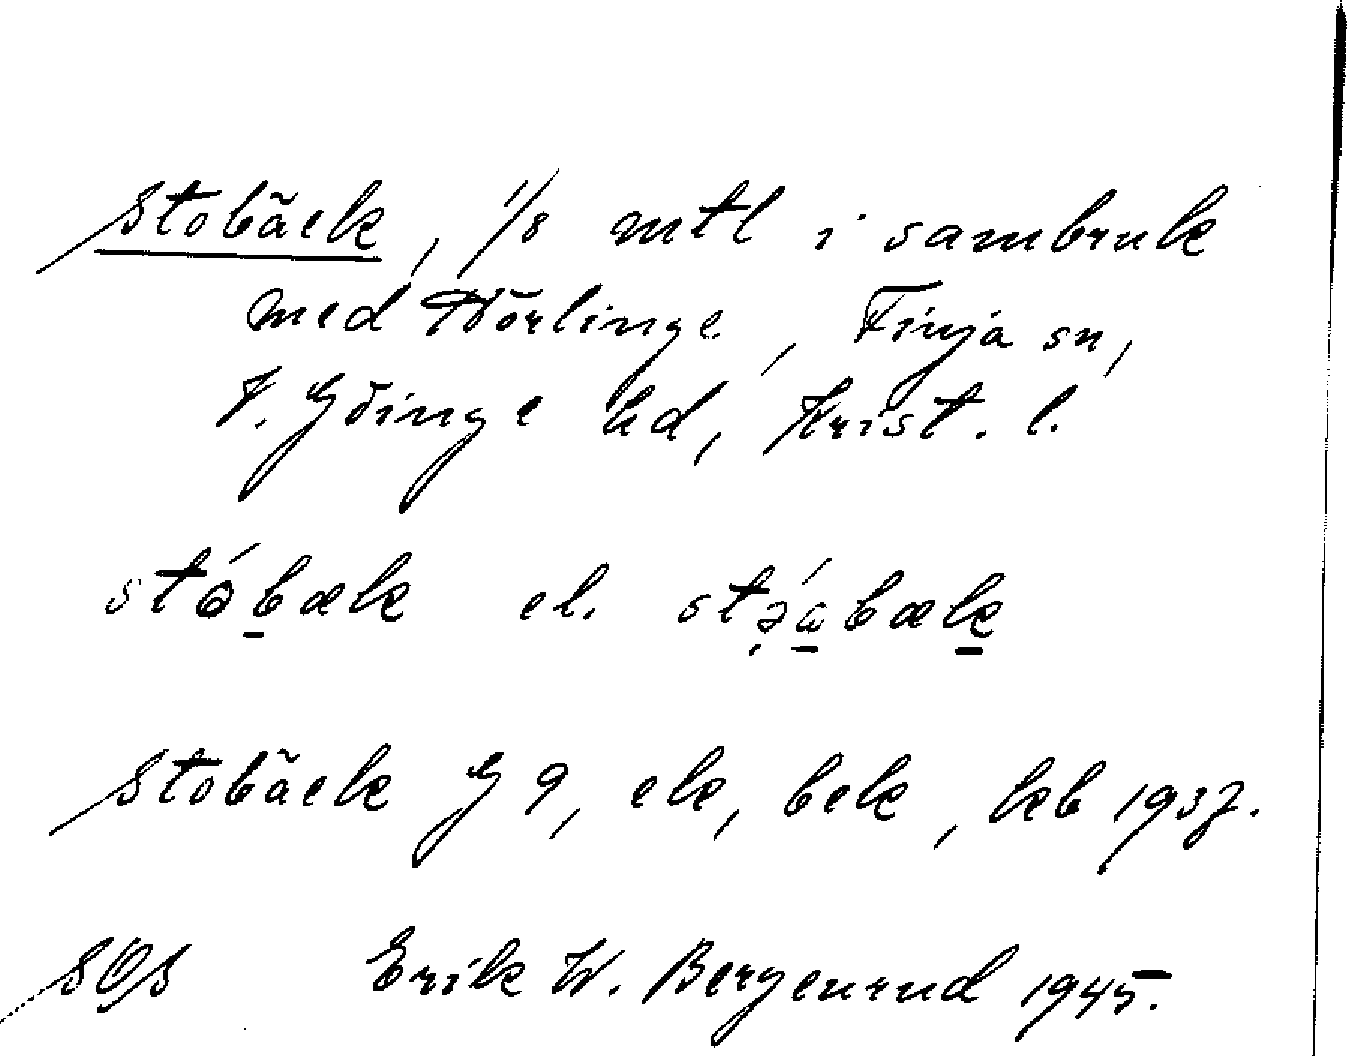 Stobäck, 1/8 mtl i sambruk
med Nörlinge, Finja sn,
V. Göinge hd, Krist. l.
stóbæk el. stəábæk
Stobäck G 9, ek, bek, kb 1937.
SOS Erik W. Bergenrud 1945.